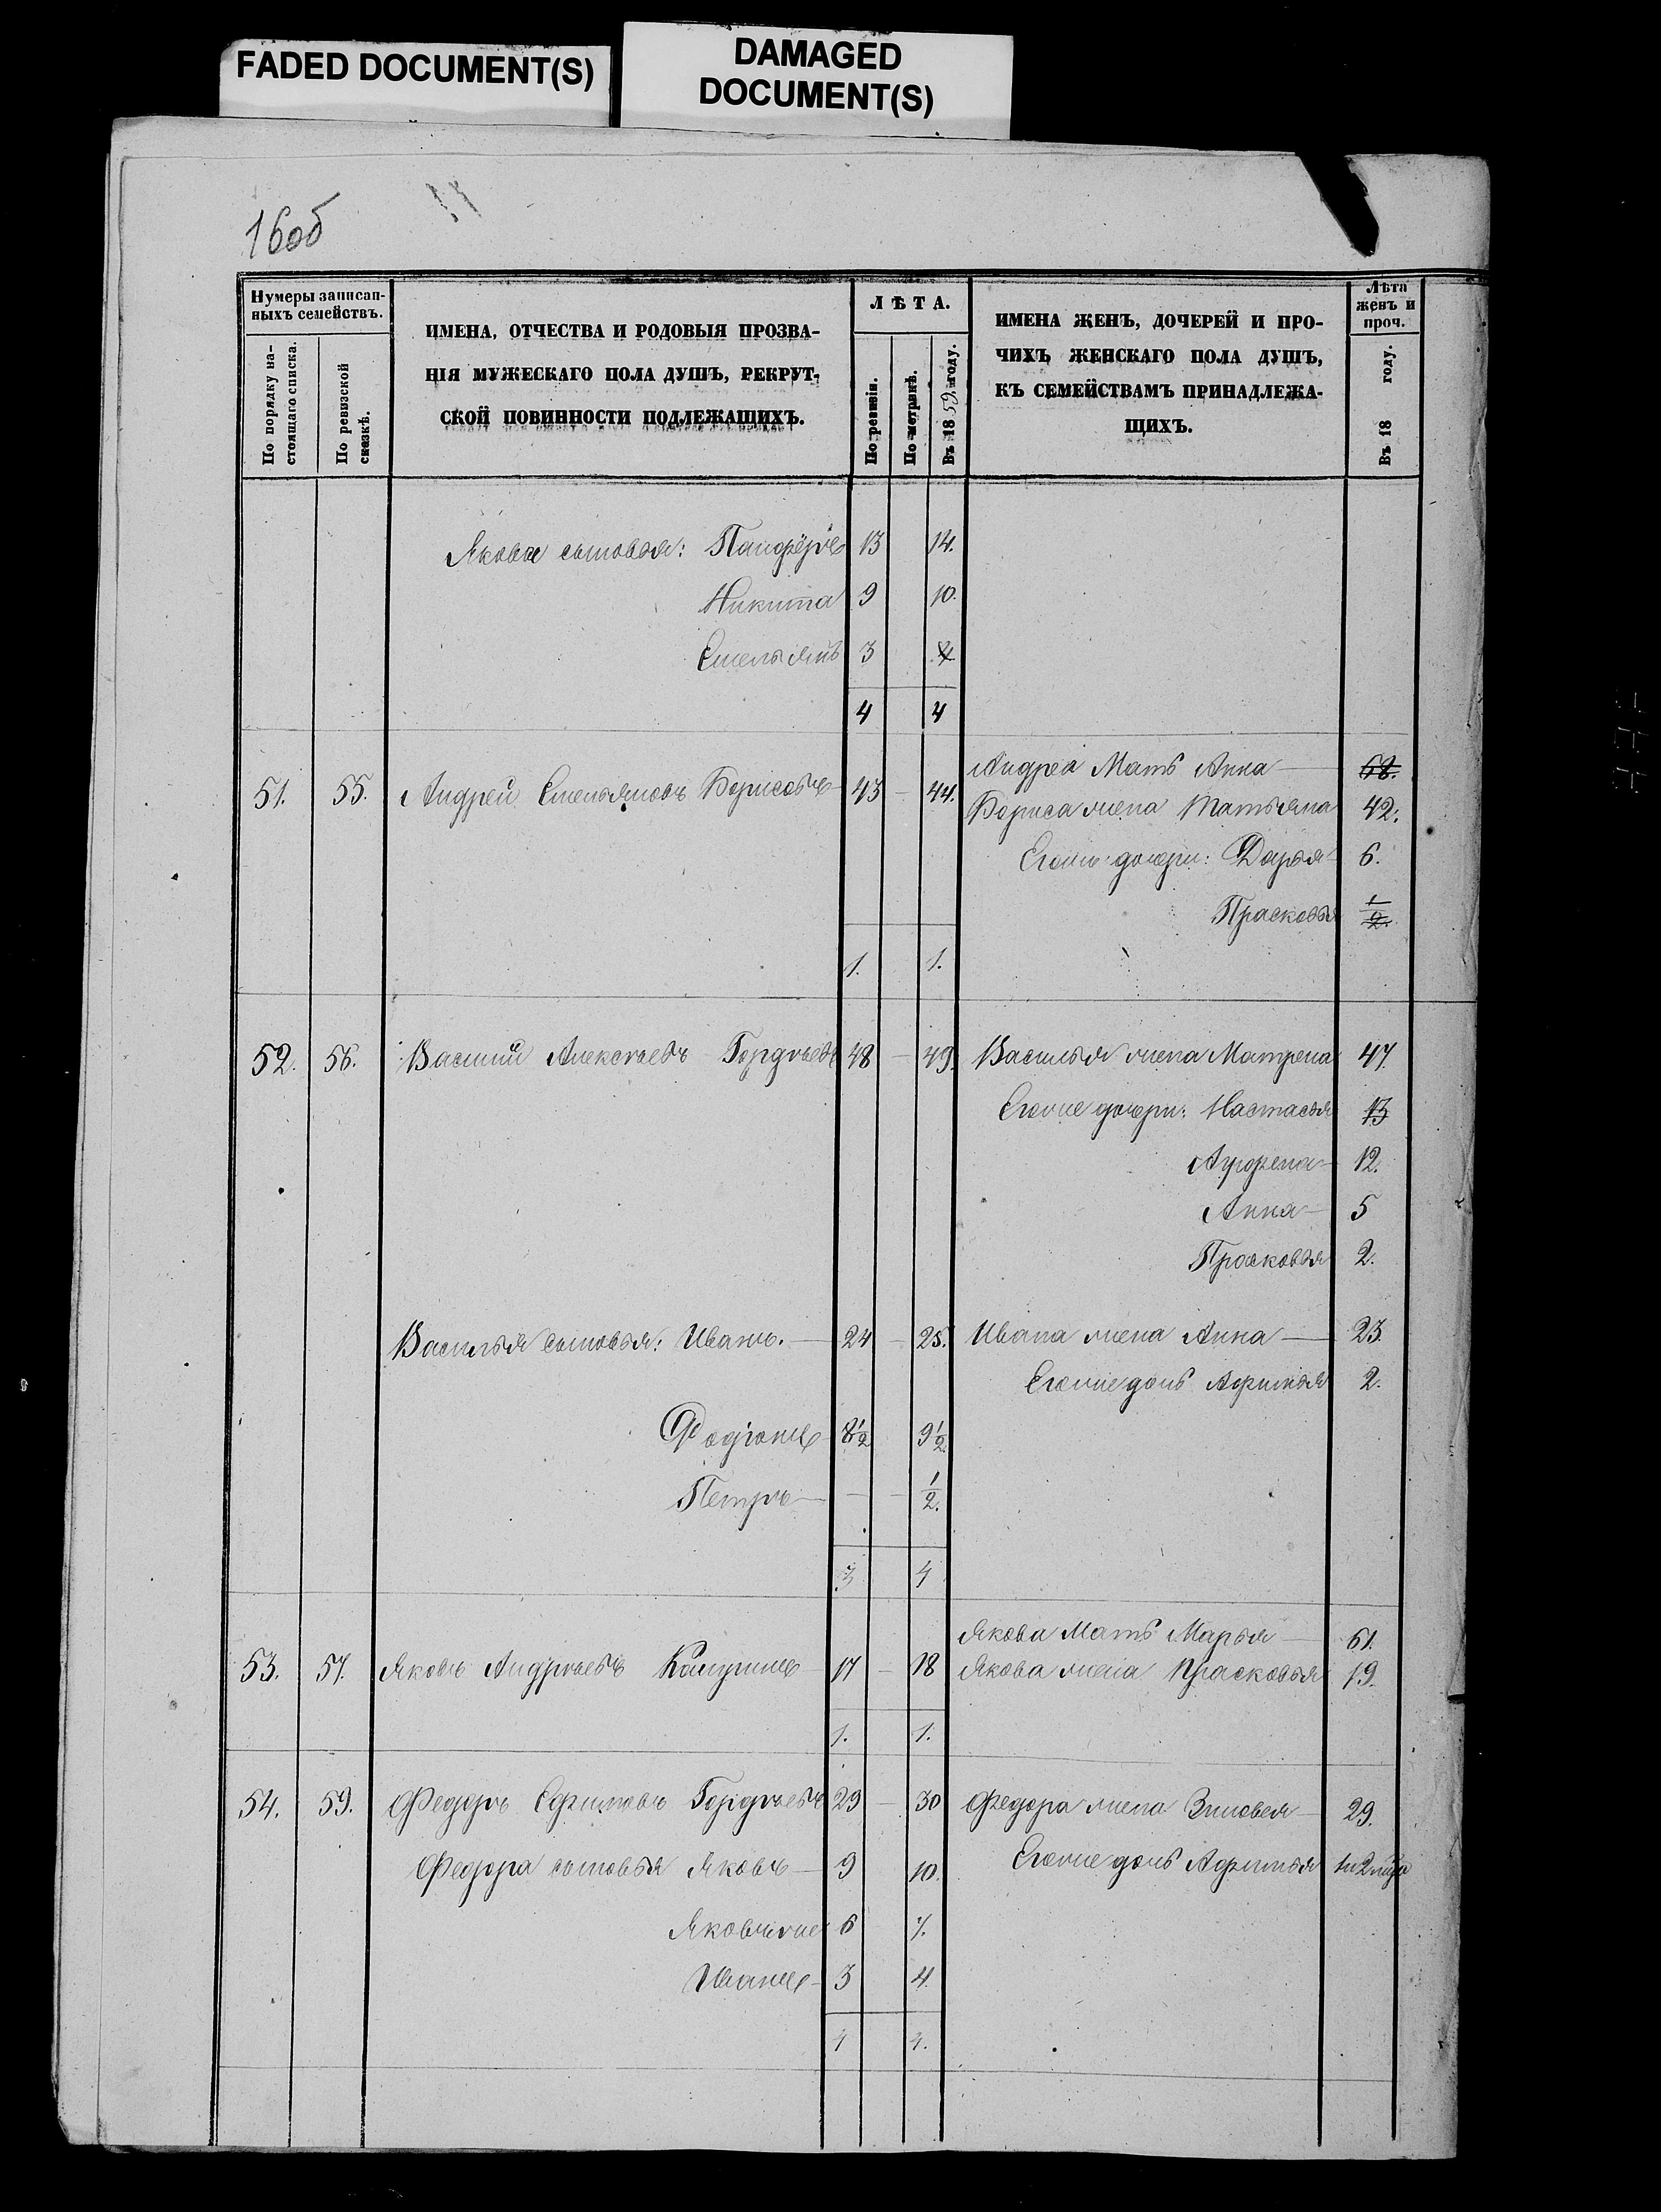 FADED DOCUMENT(S)
DAMAGED
DOCUMENT(S)
16об
Нумеры записан-
ныхъ семействъ.
По порядку на-
стоящаго списка.
По ревизской
сказкѣ.
ИМЕНА, ОТЧЕСТВА И РОДОВЫЯ ПРОЗВА-
НІЯ МУЖЕСКАГО ПОЛА ДУШЪ, РЕКРУТ-
СКОЙ ПОВИННОСТИ ПОДЛЕЖАЩИХЪ.
ЛѢТА.
По ревизіи.
По метрикѣ.
Въ 1859 году.
ИМЕНА ЖЕНЪ, ДОЧЕРЕЙ И ПРО-
ЧИХЪ ЖЕНСКАГО ПОЛА ДУШЪ,
КЪ СЕМЕЙСТВАМЪ ПРИНАДЛЕЖА-
ЩИХЪ.
Лѣта
женъ и
проч.
Въ 18 году.
Якова сыновья: 13 14.
Никита 9 10.
Емельянъ 3 4
4 4
Андрея Мать Анна 68.
51. 55. Андрей Емельяновъ Борисовъ 43 44. Бориса жена Татьяна 42.
Егоже дочери: Дарья 6.
Прасковья 1/2.
1. 1.
52. 56. Василий Алексѣевъ Гордѣевъ 48 49. Василья жена Матрена 47.
Егоже дочери: Настасья 13
12.
Анна 5
Прасковья 2.
Василья сыновья: Иванъ. 24 25. Ивана жена Анна 23.
Егоже дочь Афимья 2.
Родіонъ 8 1/2 9 1/2
Петръ 1/2.
3 4
Якова Мать Марья 61.
53. 57. Яковъ Андрѣевъ 17 18 Якова жена Прасковья 19.
1. 1.
54. 59. Федоръ Ефимовъ Гордѣевъ 29 30 Федора жена Зиновья 29.
Федора сыновья Яковъ 9 10. Егоже дочь Афимья
Яковъ же 6 7.
Иванъ 3 4.
4 4.